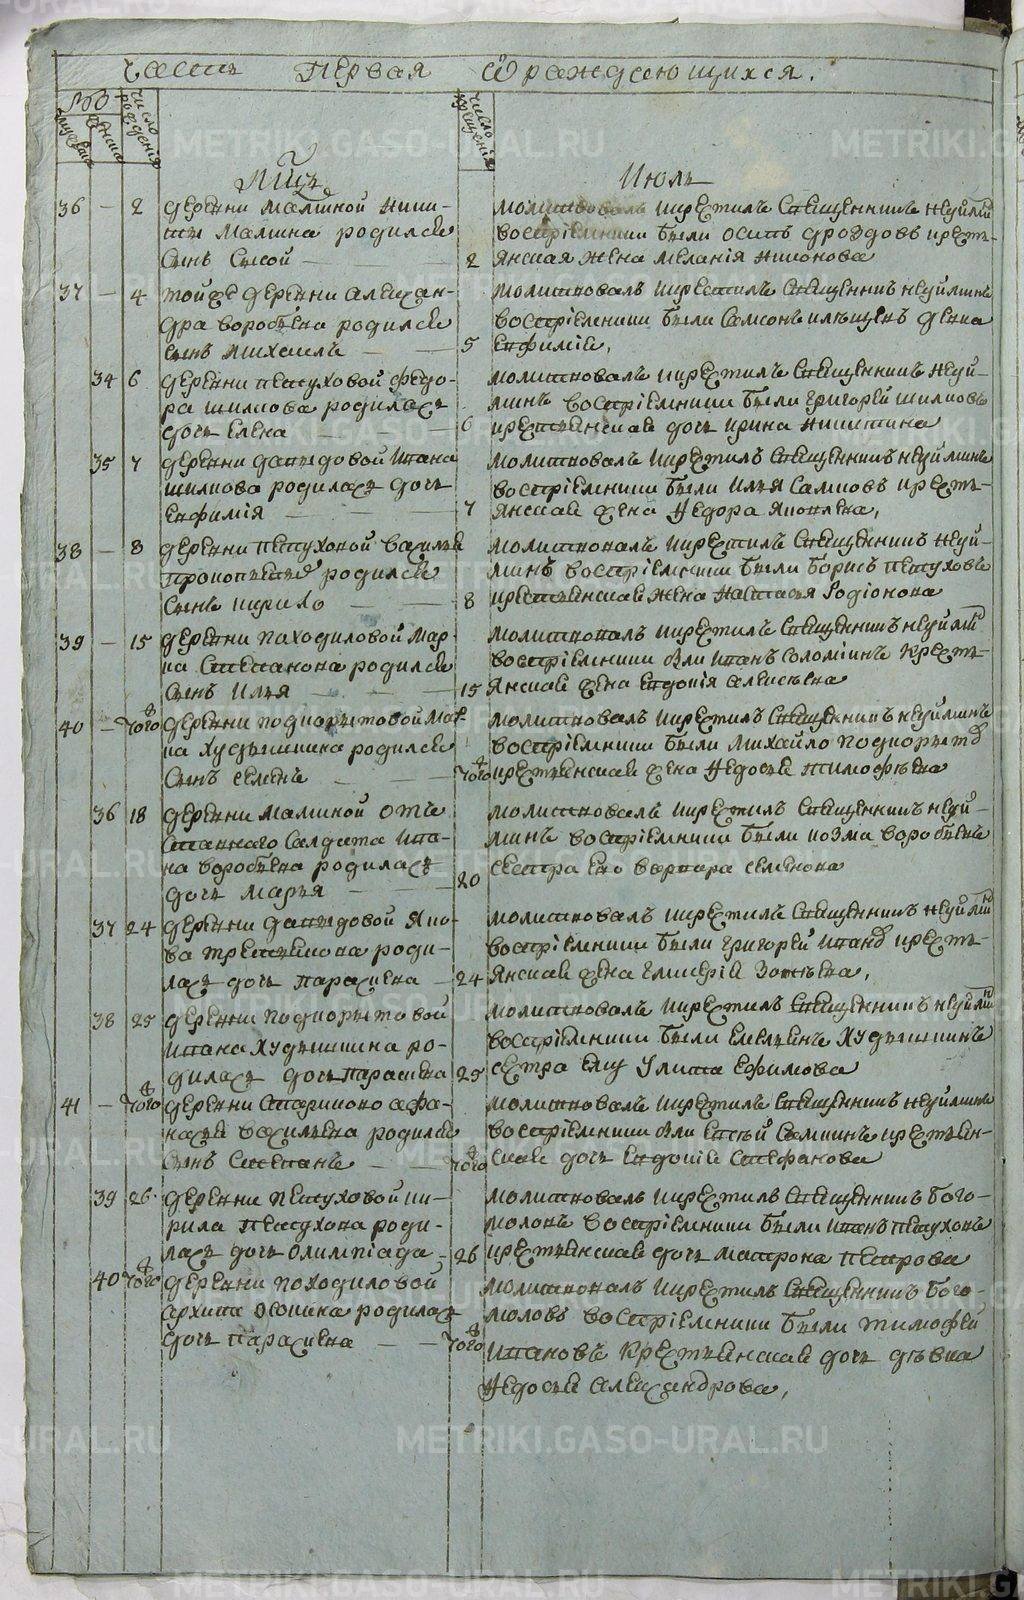 часть Первая о раждающихся.
число рождения
число крещения
Июль
36 — 2 деревни Малиной Ники-
ты Малина родился
сынъ Сысой — 2
молитвовалъ и крестилъ священникъ Неуйминъ
воспріемники были Осипъ Дроздовъ кресть-
янская жена Меланія Никонова
37 — 4 тойже деревни Алексан-
дра Воробьева родился
сынъ Михаилъ — — 5
молитвовалъ и крестилъ священникъ Неуйминъ
воспріемники были Самсонъ девка
Евфимія,
34 6 деревни Петуховой Федо-
ра Шилкова родилась
дочь Елена — — 6
молитвовалъ и крестилъ священникъ Неуй-
минъ воспріемники были Григорей Шилковъ
крестьянская дочь Ирина Никитина
35 7 деревни Давыдовой Ивана
Шилкова родилась дочь
Евфимія — — 7
молитвовалъ и крестилъ священникъ Неуйминъ
воспріемники были Илья Самковъ кресть-
янская жена Федора Яковлева,
38 — 8 деревни Петуховой Василья
Прокопьева родился
сынъ Кирило — — 8
молитвовалъ и крестилъ священникъ Неуй-
минъ воспріемники были Борисъ Петуховъ
крестьянская жена Настасья Родіонова
39 — 15 деревни Походиловой Мар-
ка Степанова родился
сынъ Илья — — 15
молитвовалъ и крестилъ священникъ Неуйминъ
воспріемники были Иванъ Соломеинъ кресть-
янская жена Евдокія Алексеева
40 — тогож деревни Подкорытовой Мар-
ка Худышкина родился
сынъ Семенъ — тогож
молитвовалъ и крестилъ священникъ Неуйминъ
воспріемники были Михайло Подкорытовъ
крестьянская жена Федосья Тимофеева
36 18 деревни Малиной отъ
ставнаго салдата Ива-
на Воробьева родилась
дочь Марья — — 20
молитвовалъ и крестилъ священникъ Неуй-
минъ воспріемники были Козма Воробьевъ
сестра ево Варвара Семенова
37 24 деревни Давыдовой Яко-
ва Третьякова роди-
лась дочь Парасковья — 24
молитвовалъ и крестилъ священникъ Неуйминъ
воспріемники были Григорей Ивановъ кресть-
янская жена Гликерія Зотеева,
38 25 деревни Подкорытовой
Ивана Худышкина ро-
дилась дочь Парасковья 25
молитвовалъ и крестилъ священникъ Неуйминъ
воспріемники были Емельянъ Худышкинъ
сестра ему Улита Ефимова
41 — тогож деревни Стариково Афа-
насья Васильева родился
сынъ Степанъ — — тогож
молитвовалъ и крестилъ священникъ Неуйминъ
воспріемники были Евсей Самкинъ крестьян-
ская дочь Евдокія Стефанова
39 26 деревни Петуховой Ки-
рила Петухова роди-
лась дочь Олимпіада — 26
молитвовалъ и крестилъ священникъ Бого-
моловъ воспріемники были Иванъ Петуховъ
крестьянская дочь Матрона Петрова
40 тогож деревни Походиловой
Архипа Осокина родилась
дочь Парасковья — — тогож
молитвовалъ и крестилъ священникъ Бого-
моловъ воспріемники были Тимофей
Ивановъ крестьянская дочь девка
Федосья Александрова,
METRIKI.GASO-URAL.RU